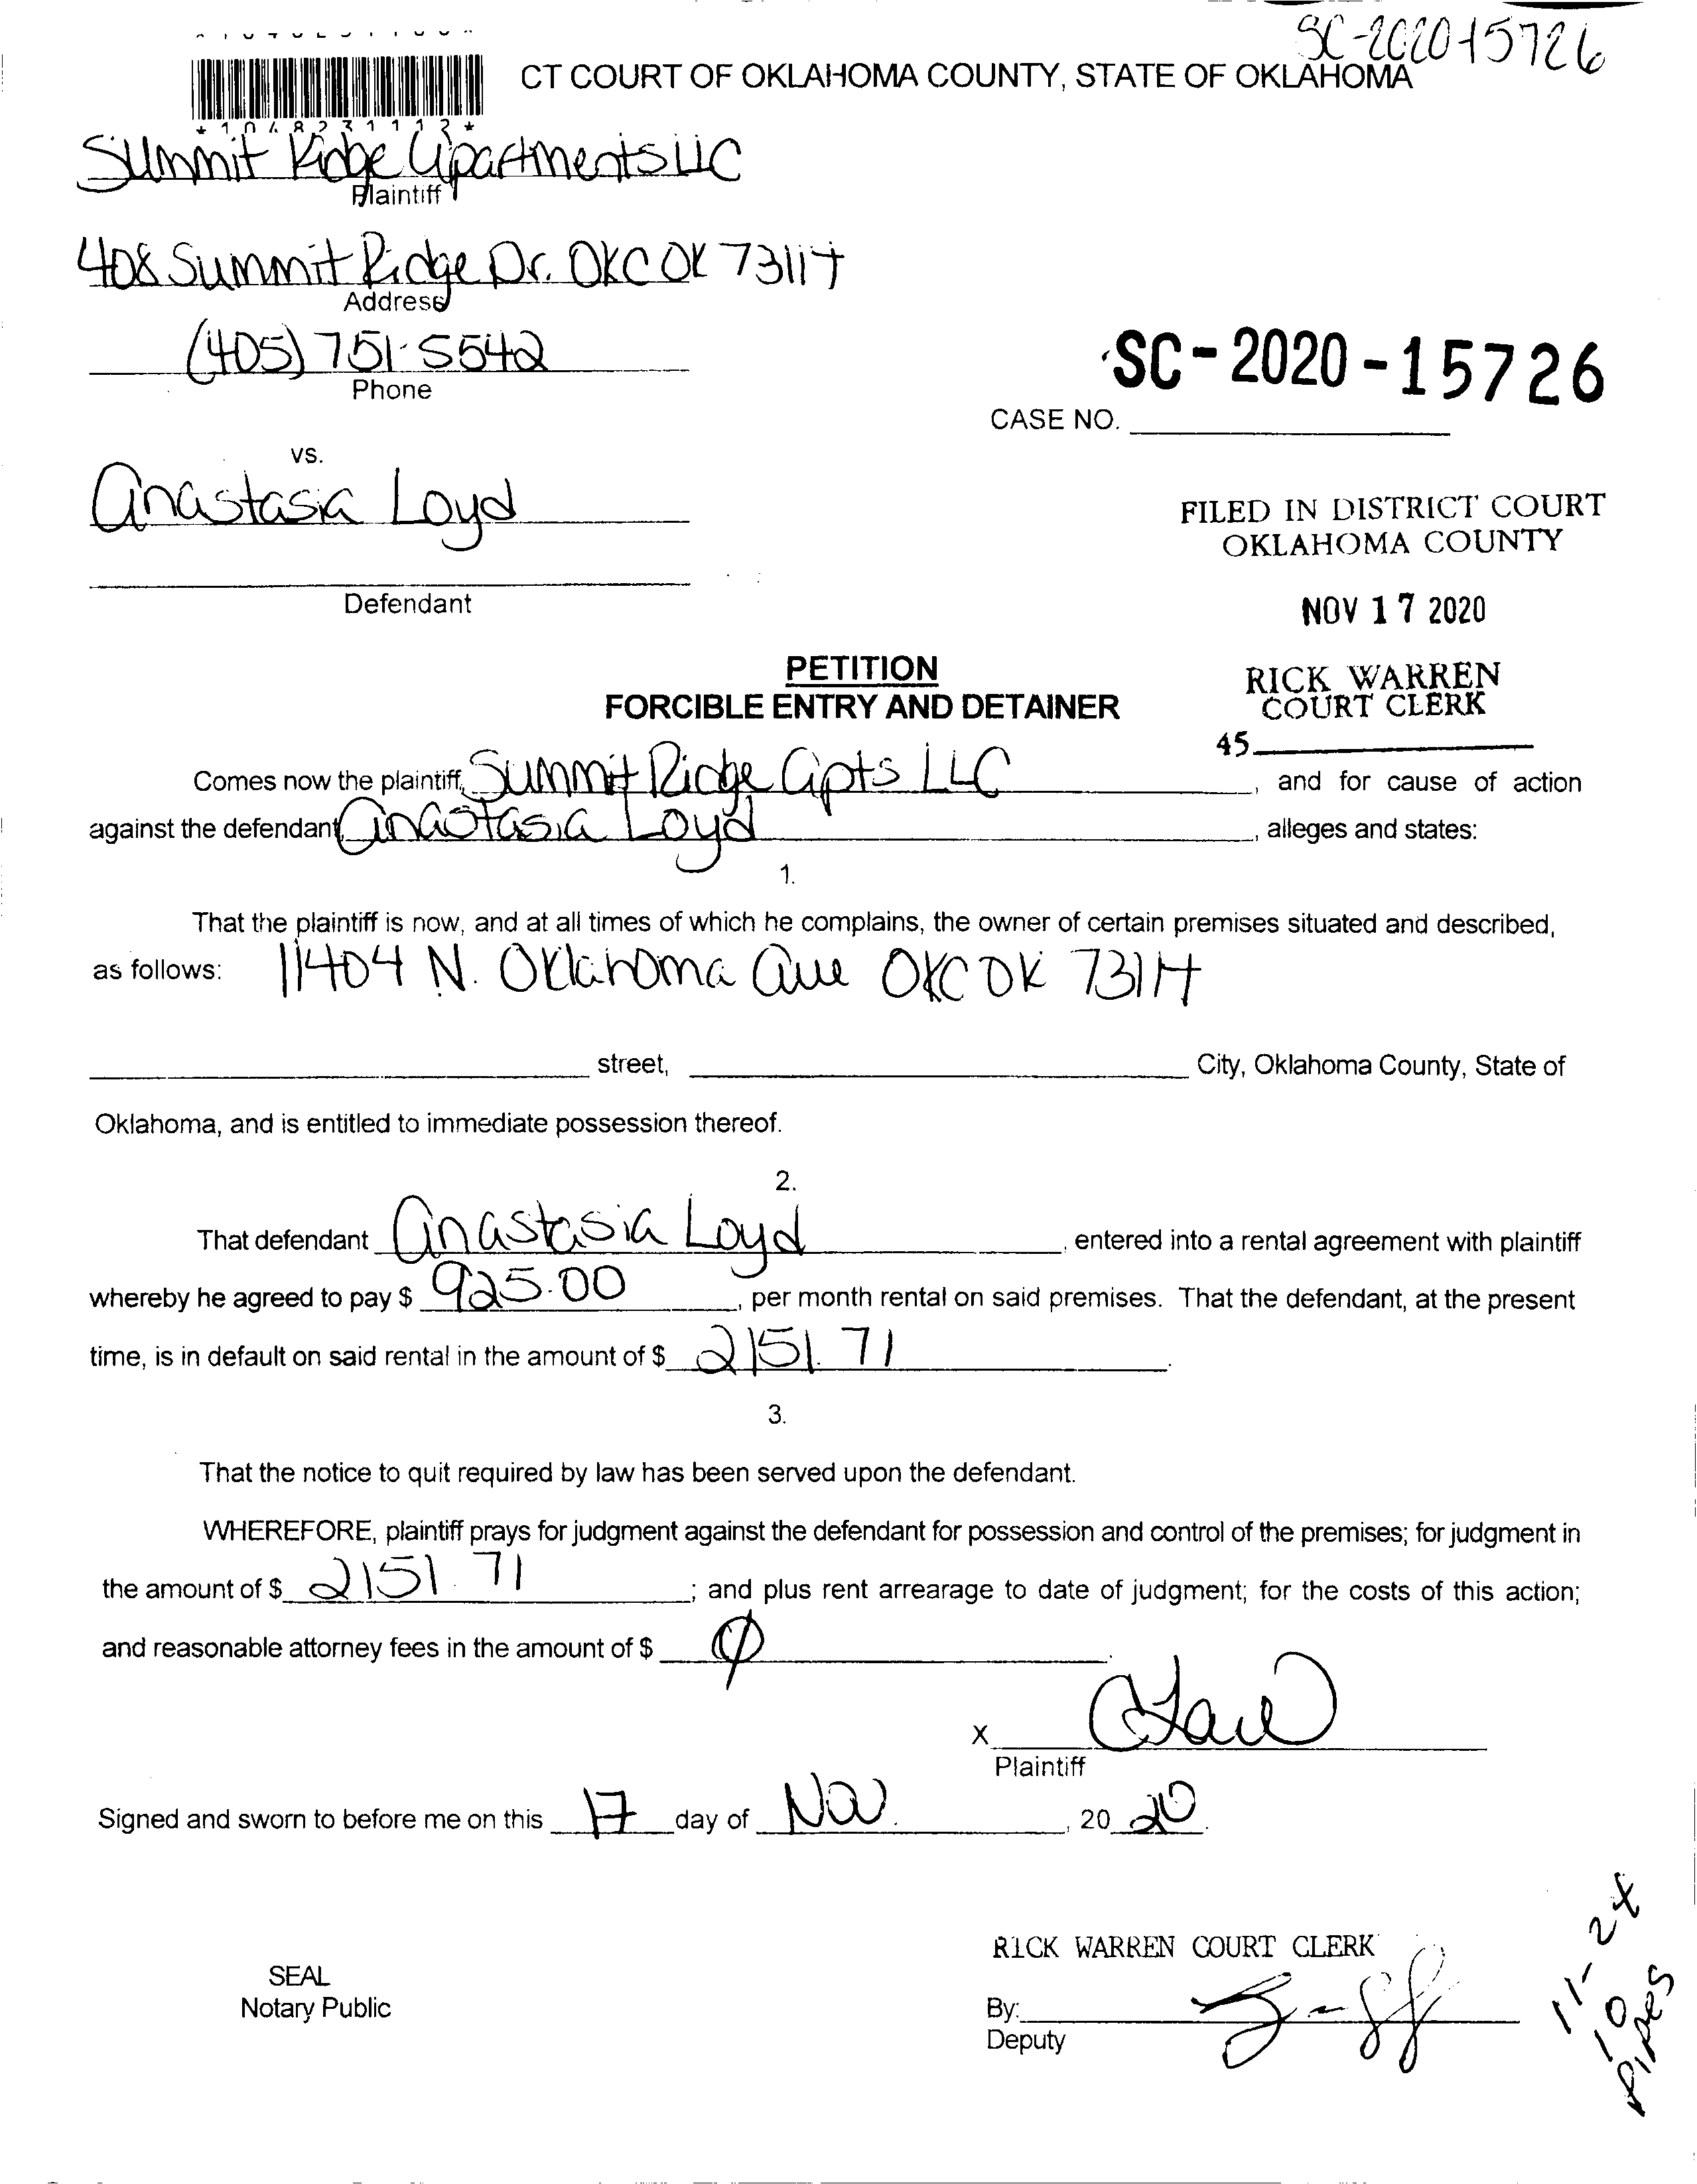 SC-2020-15726
CT COURT OF OKLAHOMA COUNTY, STATE OF OKLAHOMA
* 1 0 4 8 2 3 1 1 1 3 *
Summit Ridge Apartments LLC
Plaintiff
408 Summit Ridge Dr. OKC OK 73114
Address
(405) 751-5542
Phone
SC-2020-15726
CASE NO.
vs.
Anastasia Loyd
Defendant
FILED IN DISTRICT COURT
OKLAHOMA COUNTY
NOV 17 2020
RICK WARREN
COURT CLERK
45
PETITION
FORCIBLE ENTRY AND DETAINER
Comes now the plaintiff, Summit Ridge Apts LLC, and for cause of action
against the defendant, Anastasia Loyd, alleges and states:
1.
That the plaintiff is now, and at all times of which he complains, the owner of certain premises situated and described,
as follows: 11404 N. Oklahoma Ave OKC OK 73114
street, City, Oklahoma County, State of
Oklahoma, and is entitled to immediate possession thereof.
2.
That defendant Anastasia Loyd, entered into a rental agreement with plaintiff
whereby he agreed to pay $ 925.00, per month rental on said premises. That the defendant, at the present
time, is in default on said rental in the amount of $ 2151.71.
3.
That the notice to quit required by law has been served upon the defendant.
WHEREFORE, plaintiff prays for judgment against the defendant for possession and control of the premises; for judgment in
the amount of $ 2151.71; and plus rent arrearage to date of judgment; for the costs of this action;
and reasonable attorney fees in the amount of $ 0.
X
Plaintiff
Signed and sworn to before me on this 17 day of Nov., 20 20.
SEAL
Notary Public
RICK WARREN COURT CLERK
By:
Deputy
11-24
10